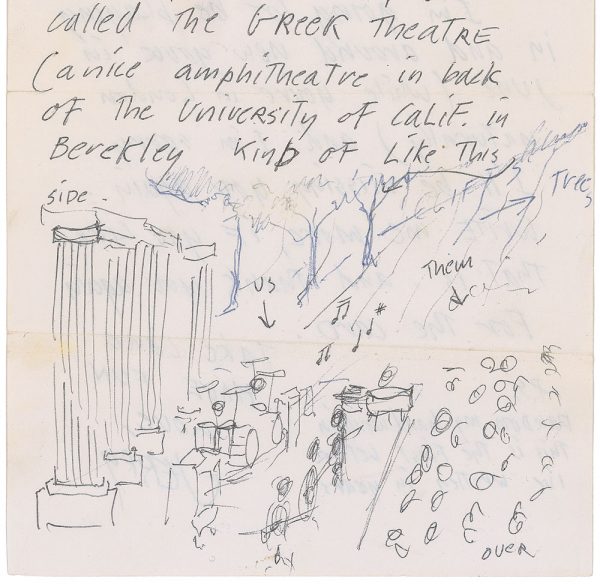 called The GREEK THEATRE
(a nice amphitheatre in back
of The University of Calif. in
Berekley Kind of Like This
Trees
side.
Them
US
OVER